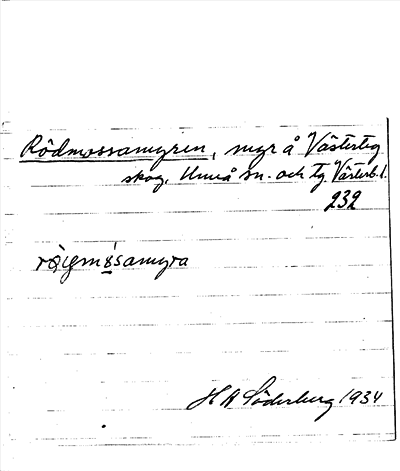 Rödmossamyren, myr å Västerteg
skog, Umeå sn. och tg Västerb. l.
232
H A Söderberg 1934